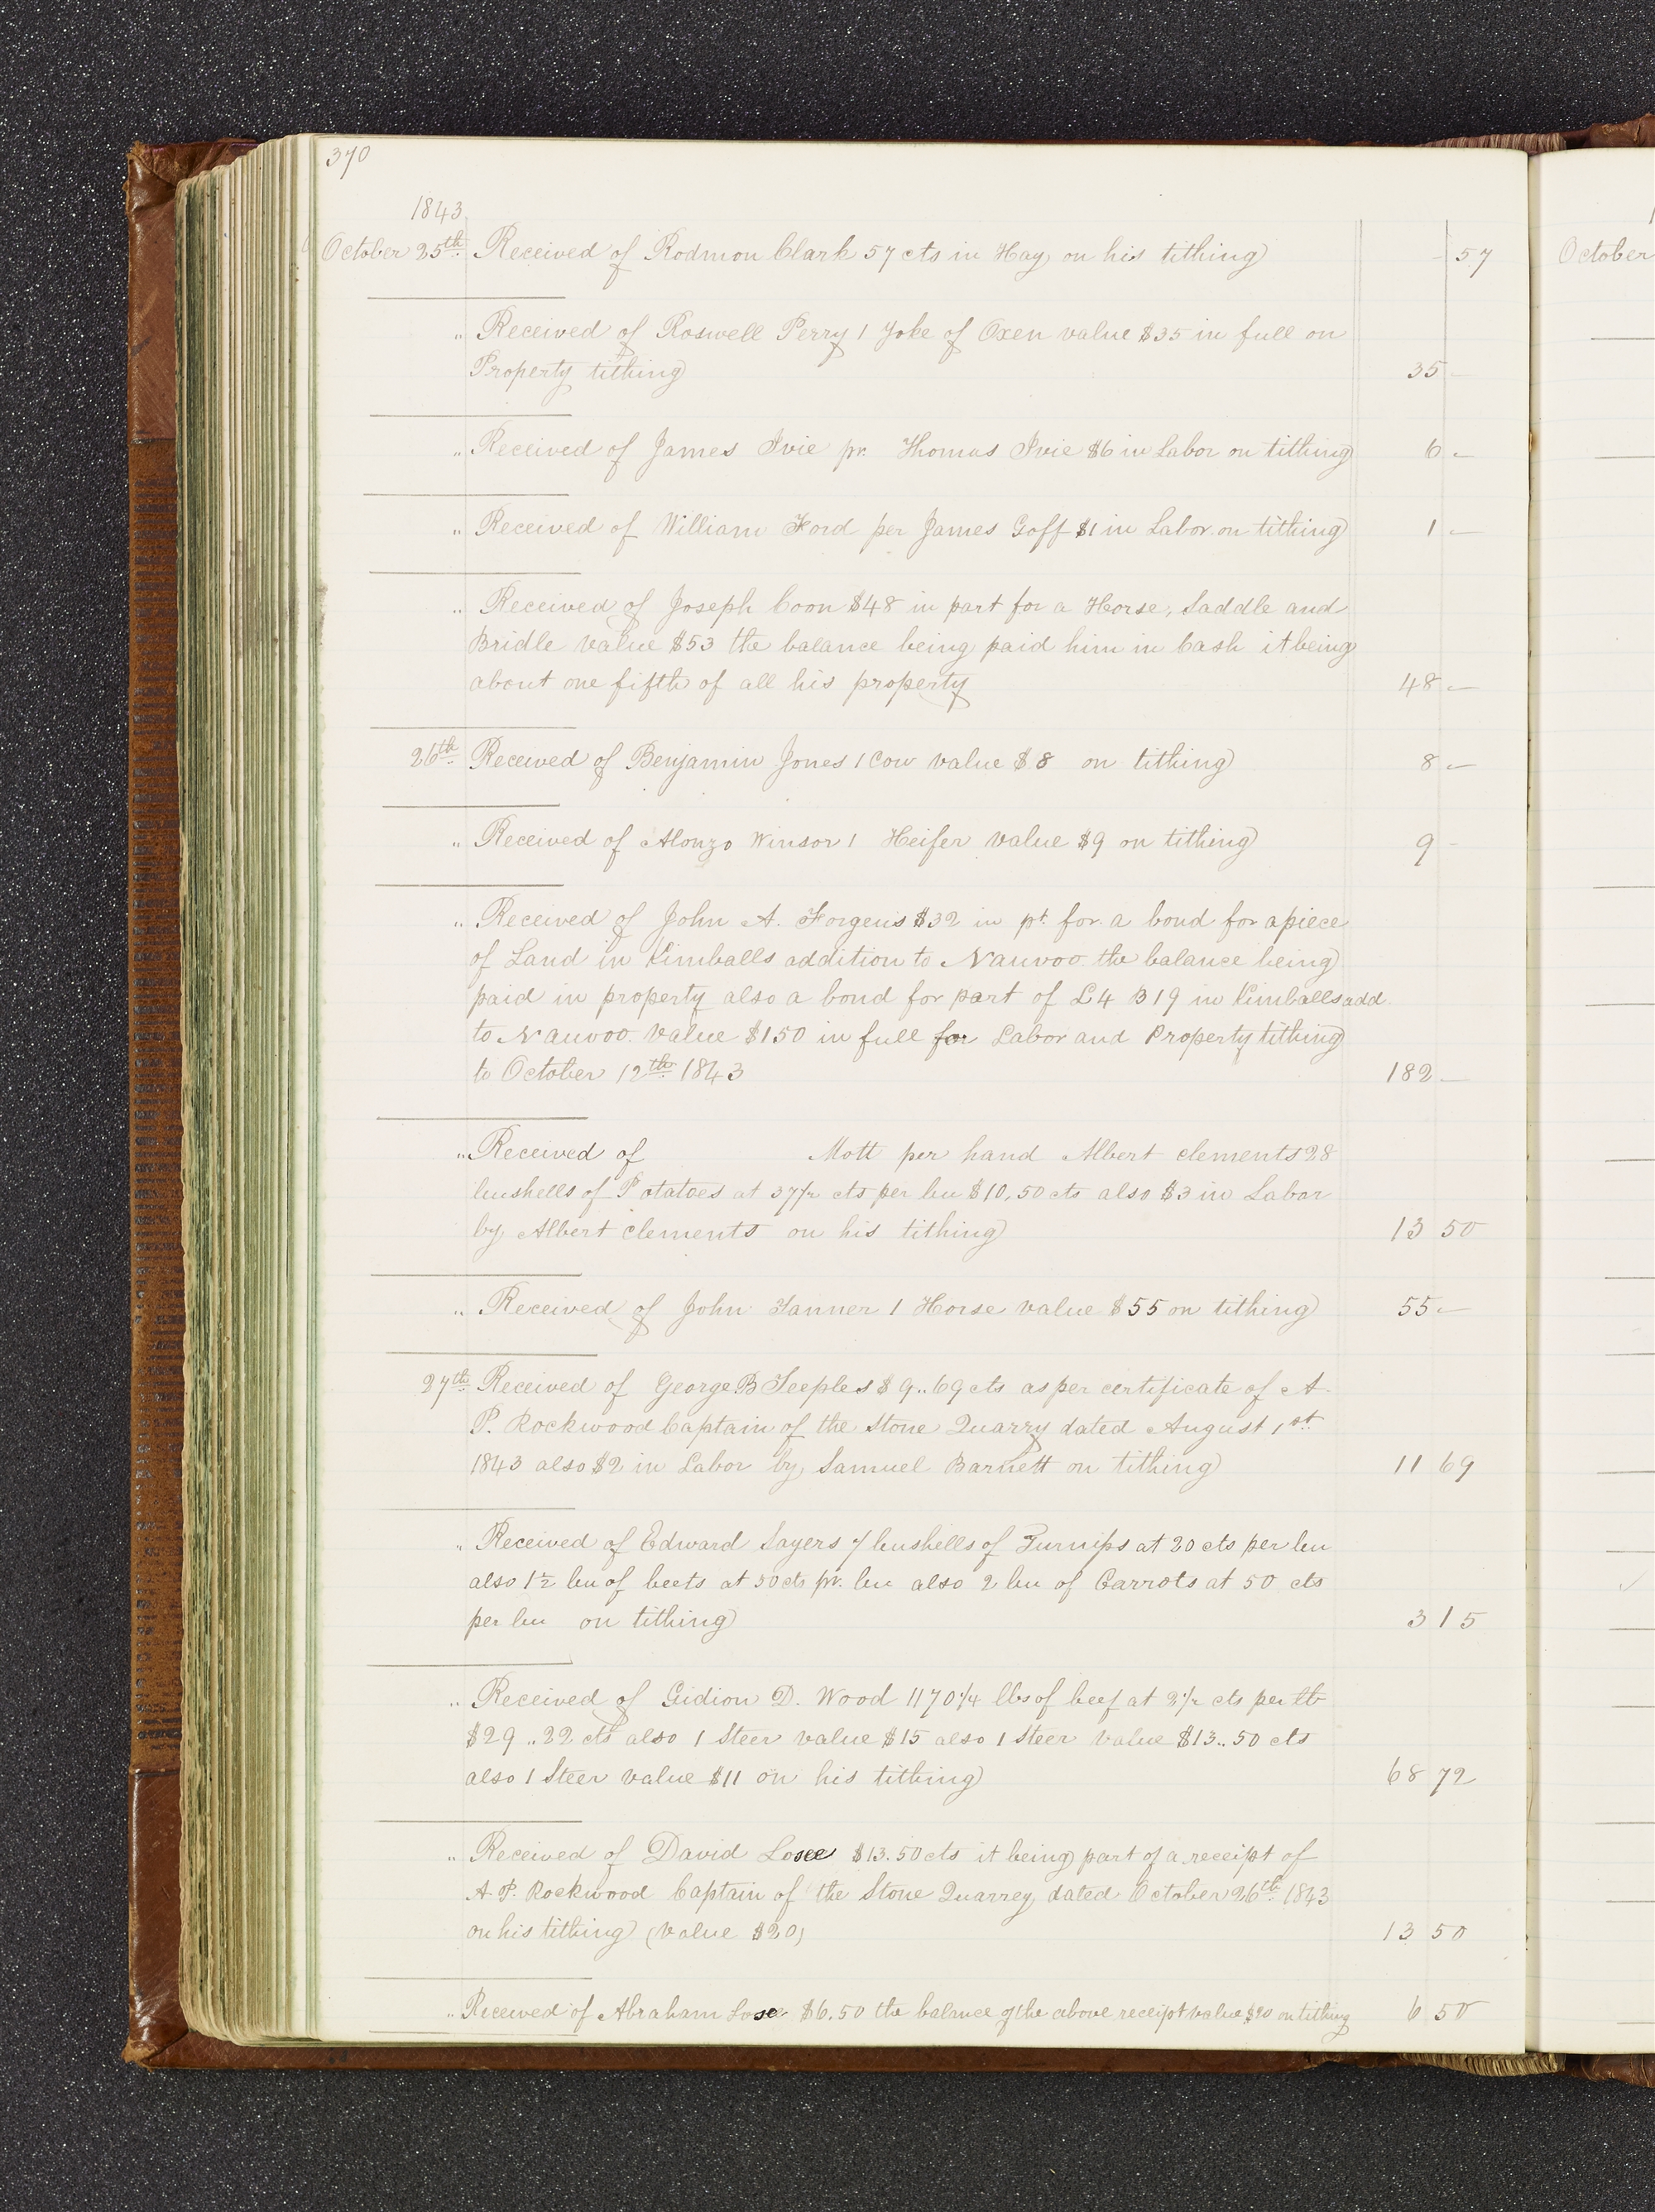 370
1843
October 25th Received of Rodmon Clark 57 cts in Hay on his tithing 57
October
„ Received of Roswell Perry 1 Yoke of Oxen value $35 in full on
Property tithing 35 –
„ Received of James Ivie pr. Thomas Ivie $6 in Labor on tithing 6 –
„ Received of William Ford per James Goff $1 in Labor on tithing 1 –
„ Received of Joseph Coon $48 in part for a Horse, Saddle and
Bridle value $53 the balance being paid him in Cash it being
about one fifth of all his property 48 –
26th Received of Benjamin Jones 1 Cow value $8 on tithing 8 –
„ Received of Alonzo Winsor 1 Heifer value $9 on tithing 9 –
„ Received of John A. Forgeus $32 in pt. for a bond for a piece
of Land in Kimballs addition to Nauvoo the balance being
paid in property also a bond for part of L4 B19 in Kimballs add
to Nauvoo value $150 in full for Labor and Property tithing
to October 12th 1843 182 –
„ Received of Mott per hand Albert Clements 28
bushells of Potatoes at 37½ cts per bu $10,50 cts also $3 in Labor
by Albert Clements on his tithing 13 50
„ Received of John Tanner 1 Horse value $55 on tithing 55 –
27th Received of George B Teeples $9..69 cts as per certificate of A.
P. Rockwood Captain of the Stone Quarry dated August 1st
1843 also $2 in Labor by Samuel Barnett on tithing 11 69
„ Received of Edward Sayers 7 bushells of Turnips at 20 cts per bu
also 1½ bu of beets at 50 cts pr. bu also 2 bu of Carrots at 50 cts
per bu on tithing 3 15
„ Received of Gidion D. Wood 1170¼ lbs of beef at 2½ cts per lb
$29..22 cts also 1 Steer value $15 also 1 Steer value $13..50 cts
also 1 Steer value $11 on his tithing 68 72
„ Received of David Losee $13.50 cts it being part of a receipt of
A. P. Rockwood Captain of the Stone Quarrey dated October 26th 1843
on his tithing (value $20) 13 50
„ Received of Abraham Lose $6.50 the balance of the above receipt value $20 on tithing 6 50